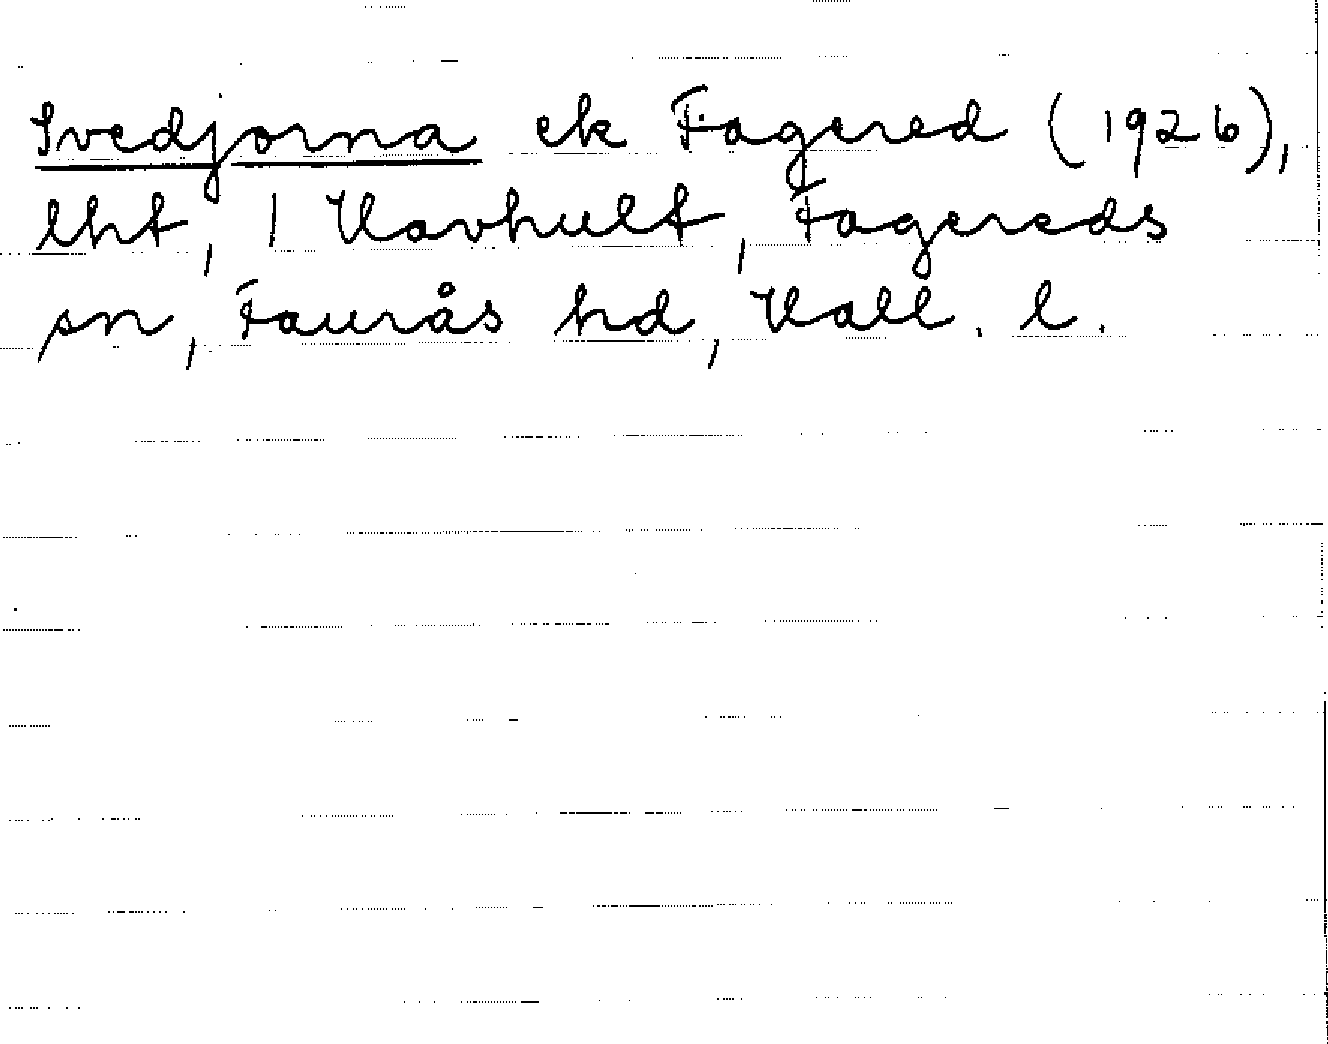 Svedjorna ek Fagered (1926),
lht, 1 Havhult, Fagereds
sn, Faurås hd, Hall. l.